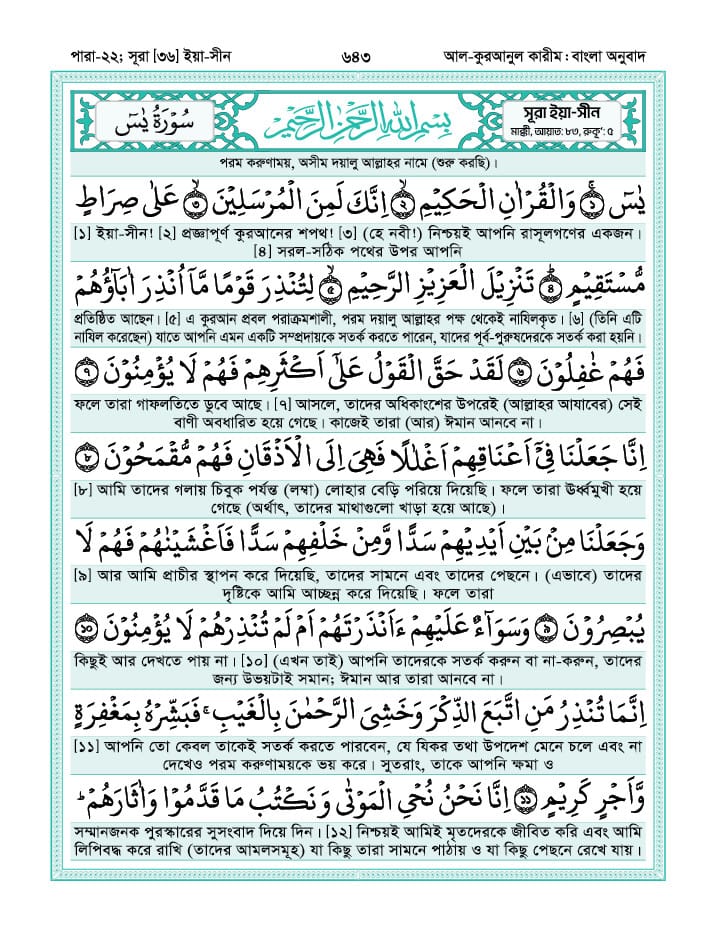 পারা-২২; সূরা [৩৬] ইয়া-সীন ৬৪৩ আল-কুরআনুল কারীম : বাংলা অনুবাদ
سُوْرَةُ يٰسٓ بِسْمِ اللّٰهِ الرَّحْمٰنِ الرَّحِيْمِ সূরা ইয়া-সীন
মাক্কী, আয়াত: ৮৩, রুকূ‘: ৫
পরম করুণাময়, অসীম দয়ালু আল্লাহর নামে (শুরু করছি)।
يٰسٓ ۚ ﴿۱﴾ وَالْقُرْاٰنِ الْحَكِيْمِ ﴿۲﴾ اِنَّكَ لَمِنَ الْمُرْسَلِيْنَ ﴿۳﴾ عَلٰى صِرَاطٍ
[১] ইয়া-সীন! [২] প্রজ্ঞাপূর্ণ কুরআনের শপথ! [৩] (হে নবী!) নিশ্চয়ই আপনি রাসূলগণের একজন।
[৪] সরল-সঠিক পথের উপর আপনি
مُّسْتَقِيْمٍ ﴿۴﴾ تَنْزِيْلَ الْعَزِيْزِ الرَّحِيْمِ ﴿۵﴾ لِتُنْذِرَ قَوْمًا مَّاۤ اُنْذِرَ اٰبَآؤُهُمْ
প্রতিষ্ঠিত আছেন। [৫] এ কুরআন প্রবল পরাক্রমশালী, পরম দয়ালু আল্লাহর পক্ষ থেকেই নাযিলকৃত। [৬] (তিনি এটি
নাযিল করেছেন) যাতে আপনি এমন একটি সম্প্রদায়কে সতর্ক করতে পারেন, যাদের পূর্ব-পুরুষদেরকে সতর্ক করা হয়নি।
فَهُمْ غٰفِلُوْنَ ﴿۶﴾ لَقَدْ حَقَّ الْقَوْلُ عَلٰۤى اَكْثَرِهِمْ فَهُمْ لَا يُؤْمِنُوْنَ ﴿۷﴾
ফলে তারা গাফলতিতে ডুবে আছে। [৭] আসলে, তাদের অধিকাংশের উপরেই (আল্লাহর আযাবের) সেই
বাণী অবধারিত হয়ে গেছে। কাজেই তারা (আর) ঈমান আনবে না।
اِنَّا جَعَلْنَا فِيْۤ اَعْنَاقِهِمْ اَغْلٰلًا فَهِيَ اِلَى الْاَذْقَانِ فَهُمْ مُّقْمَحُوْنَ ﴿۸﴾
[৮] আমি তাদের গলায় চিবুক পর্যন্ত (লম্বা) লোহার বেড়ি পরিয়ে দিয়েছি। ফলে তারা ঊর্ধ্বমুখী হয়ে
গেছে (অর্থাৎ, তাদের মাথাগুলো খাড়া হয়ে আছে)।
وَجَعَلْنَا مِنْۢ بَيْنِ اَيْدِيْهِمْ سَدًّا وَّمِنْ خَلْفِهِمْ سَدًّا فَاَغْشَيْنٰهُمْ فَهُمْ لَا
[৯] আর আমি প্রাচীর স্থাপন করে দিয়েছি, তাদের সামনে এবং তাদের পেছনে। (এভাবে) তাদের
দৃষ্টিকে আমি আচ্ছন্ন করে দিয়েছি। ফলে তারা
يُبْصِرُوْنَ ﴿۹﴾ وَسَوَآءٌ عَلَيْهِمْ ءَاَنْذَرْتَهُمْ اَمْ لَمْ تُنْذِرْهُمْ لَا يُؤْمِنُوْنَ ﴿۱۰﴾
কিছুই আর দেখতে পায় না। [১০] (এখন তাই) আপনি তাদেরকে সতর্ক করুন বা না-করুন, তাদের
জন্য উভয়টাই সমান; ঈমান আর তারা আনবে না।
اِنَّمَا تُنْذِرُ مَنِ اتَّبَعَ الذِّكْرَ وَخَشِيَ الرَّحْمٰنَ بِالْغَيْبِ ۚ فَبَشِّرْهُ بِمَغْفِرَةٍ
[১১] আপনি তো কেবল তাকেই সতর্ক করতে পারবেন, যে যিকর তথা উপদেশ মেনে চলে এবং না
দেখেও পরম করুণাময়কে ভয় করে। সুতরাং, তাকে আপনি ক্ষমা ও
وَّاَجْرٍ كَرِيْمٍ ﴿۱۱﴾ اِنَّا نَحْنُ نُحْيِ الْمَوْتٰى وَنَكْتُبُ مَا قَدَّمُوْا وَاٰثَارَهُمْ ؕ
সম্মানজনক পুরস্কারের সুসংবাদ দিয়ে দিন। [১২] নিশ্চয়ই আমিই মৃতদেরকে জীবিত করি এবং আমি
লিপিবদ্ধ করে রাখি (তাদের আমলসমূহ) যা কিছু তারা সামনে পাঠায় ও যা কিছু পেছনে রেখে যায়।